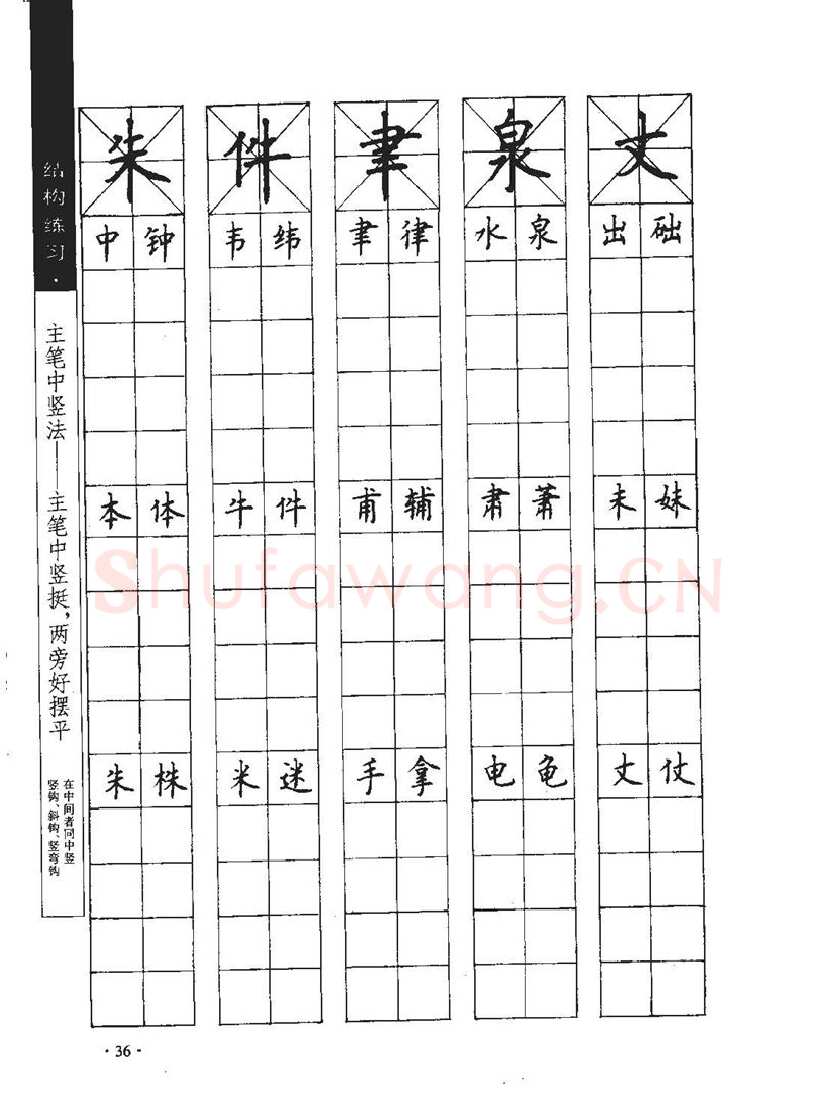 结构练习·
主笔中竖法——主笔中竖挺，两旁好摆平
在中间者同中竖
竖钩、斜钩、竖弯钩
朱 件 聿 泉 丈
中 钟 韦 纬 聿 律 水 泉 出 础
本 体 牛 件 甫 辅 肃 萧 未 妹
朱 株 米 迷 手 拿 电 龟 丈 仗
Shufawang.CN
·36·